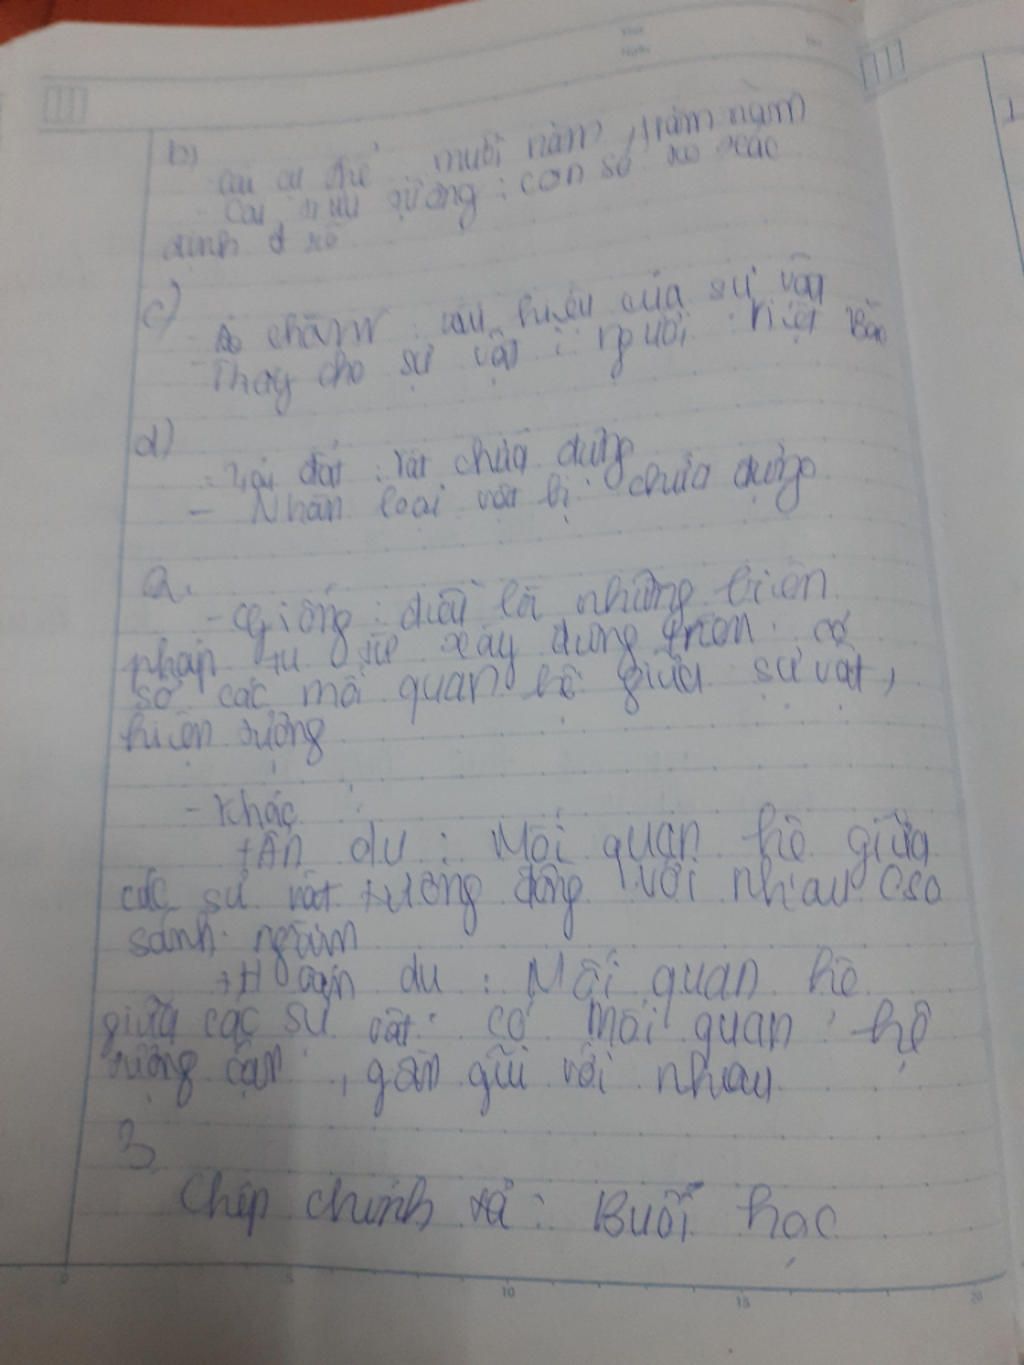 b)
cái cụ thể mười năm, trăm năm
- Cái trừu tượng : con số ko xác
định đ rõ
c)
- Áo chàm : dấu hiệu của sự vật
- Thay cho sự vật : người Việt Bắc
d)
- Trái đất : vật chứa đựng
- Nhân loại vật bị chứa đựng
2.
- Giống : đều là những biện
pháp tu từ xây dựng trên cơ
sở các mối quan hệ giữa sự vật,
hiện tượng
- Khác :
+ Ẩn dụ : Mối quan hệ giữa
các sự vật tương đồng với nhau (so
sánh ngầm
+ Hoán dụ : Mối quan hệ
giữa các sự vật có mối quan hệ
tương cận, gần gũi với nhau
3
Chép chính tả : Buổi học